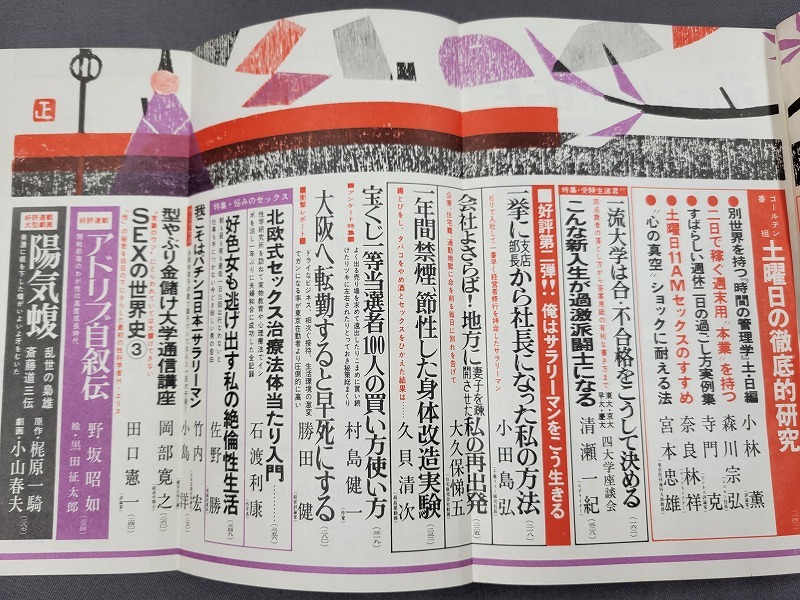 ゴールデン
番組
土曜日の徹底的研究
別世界を持つ“時間の管理学”土・日編
小林薫
二日で稼ぐ週末用“本業”を持つ
森川宗弘
すばらしい週休二日の過ごし方実例集
寺門克
土曜日11AMセックスのすすめ
奈良林祥
“心の真空”ショックに耐える法
宮本忠雄
特集・受験生諸君!!
一流大学は合・不合格をこうして決める
東大・京大
早大・慶大
四大学座談会
こんな新入生が過激派闘士になる
清瀬一紀
好評第二弾!!俺はサラリーマンをこう生きる
ビリで入社して一番早く経営者修行を押念した私
一挙に
支店
部長
から社長になった私の方法
小田島弘
会社よさらば!地方に
妻子を疎
開させた
私の再出発
大久保保五
一年間禁煙、節性した身体改造実験
縄とびをし、タバコをやめ酒とセックスをひかえた結果は……
久貝清次
アンケート特集
宝くじ一等当選者100人の買い方使い方
村島健一
衝撃レポート
大阪へ転勤すると早死にする
勝田健
特集・悩みのセックス
北欧式セックス治療法体当たり入門
石渡利康
好色女も逃げ出す私の絶倫性生活
佐野勝
我こそはパチンコ日本一サラリーマン
竹内宏
小島洋
型やぶり金儲け大学通信講座
岡部寛之
SEXの世界史③
田口憲一
好評連載
アドリブ自叙伝
関税前夜のわが性の高度成長時代
野坂昭如
絵・黒田征太郎
好評連載
大型劇画
陽気蝮
乱世の梟雄
斎藤道三伝
美濃に根を下した蝮がいよいよ牙をむいた
原作・梶原一騎
劇画・小山春夫
正